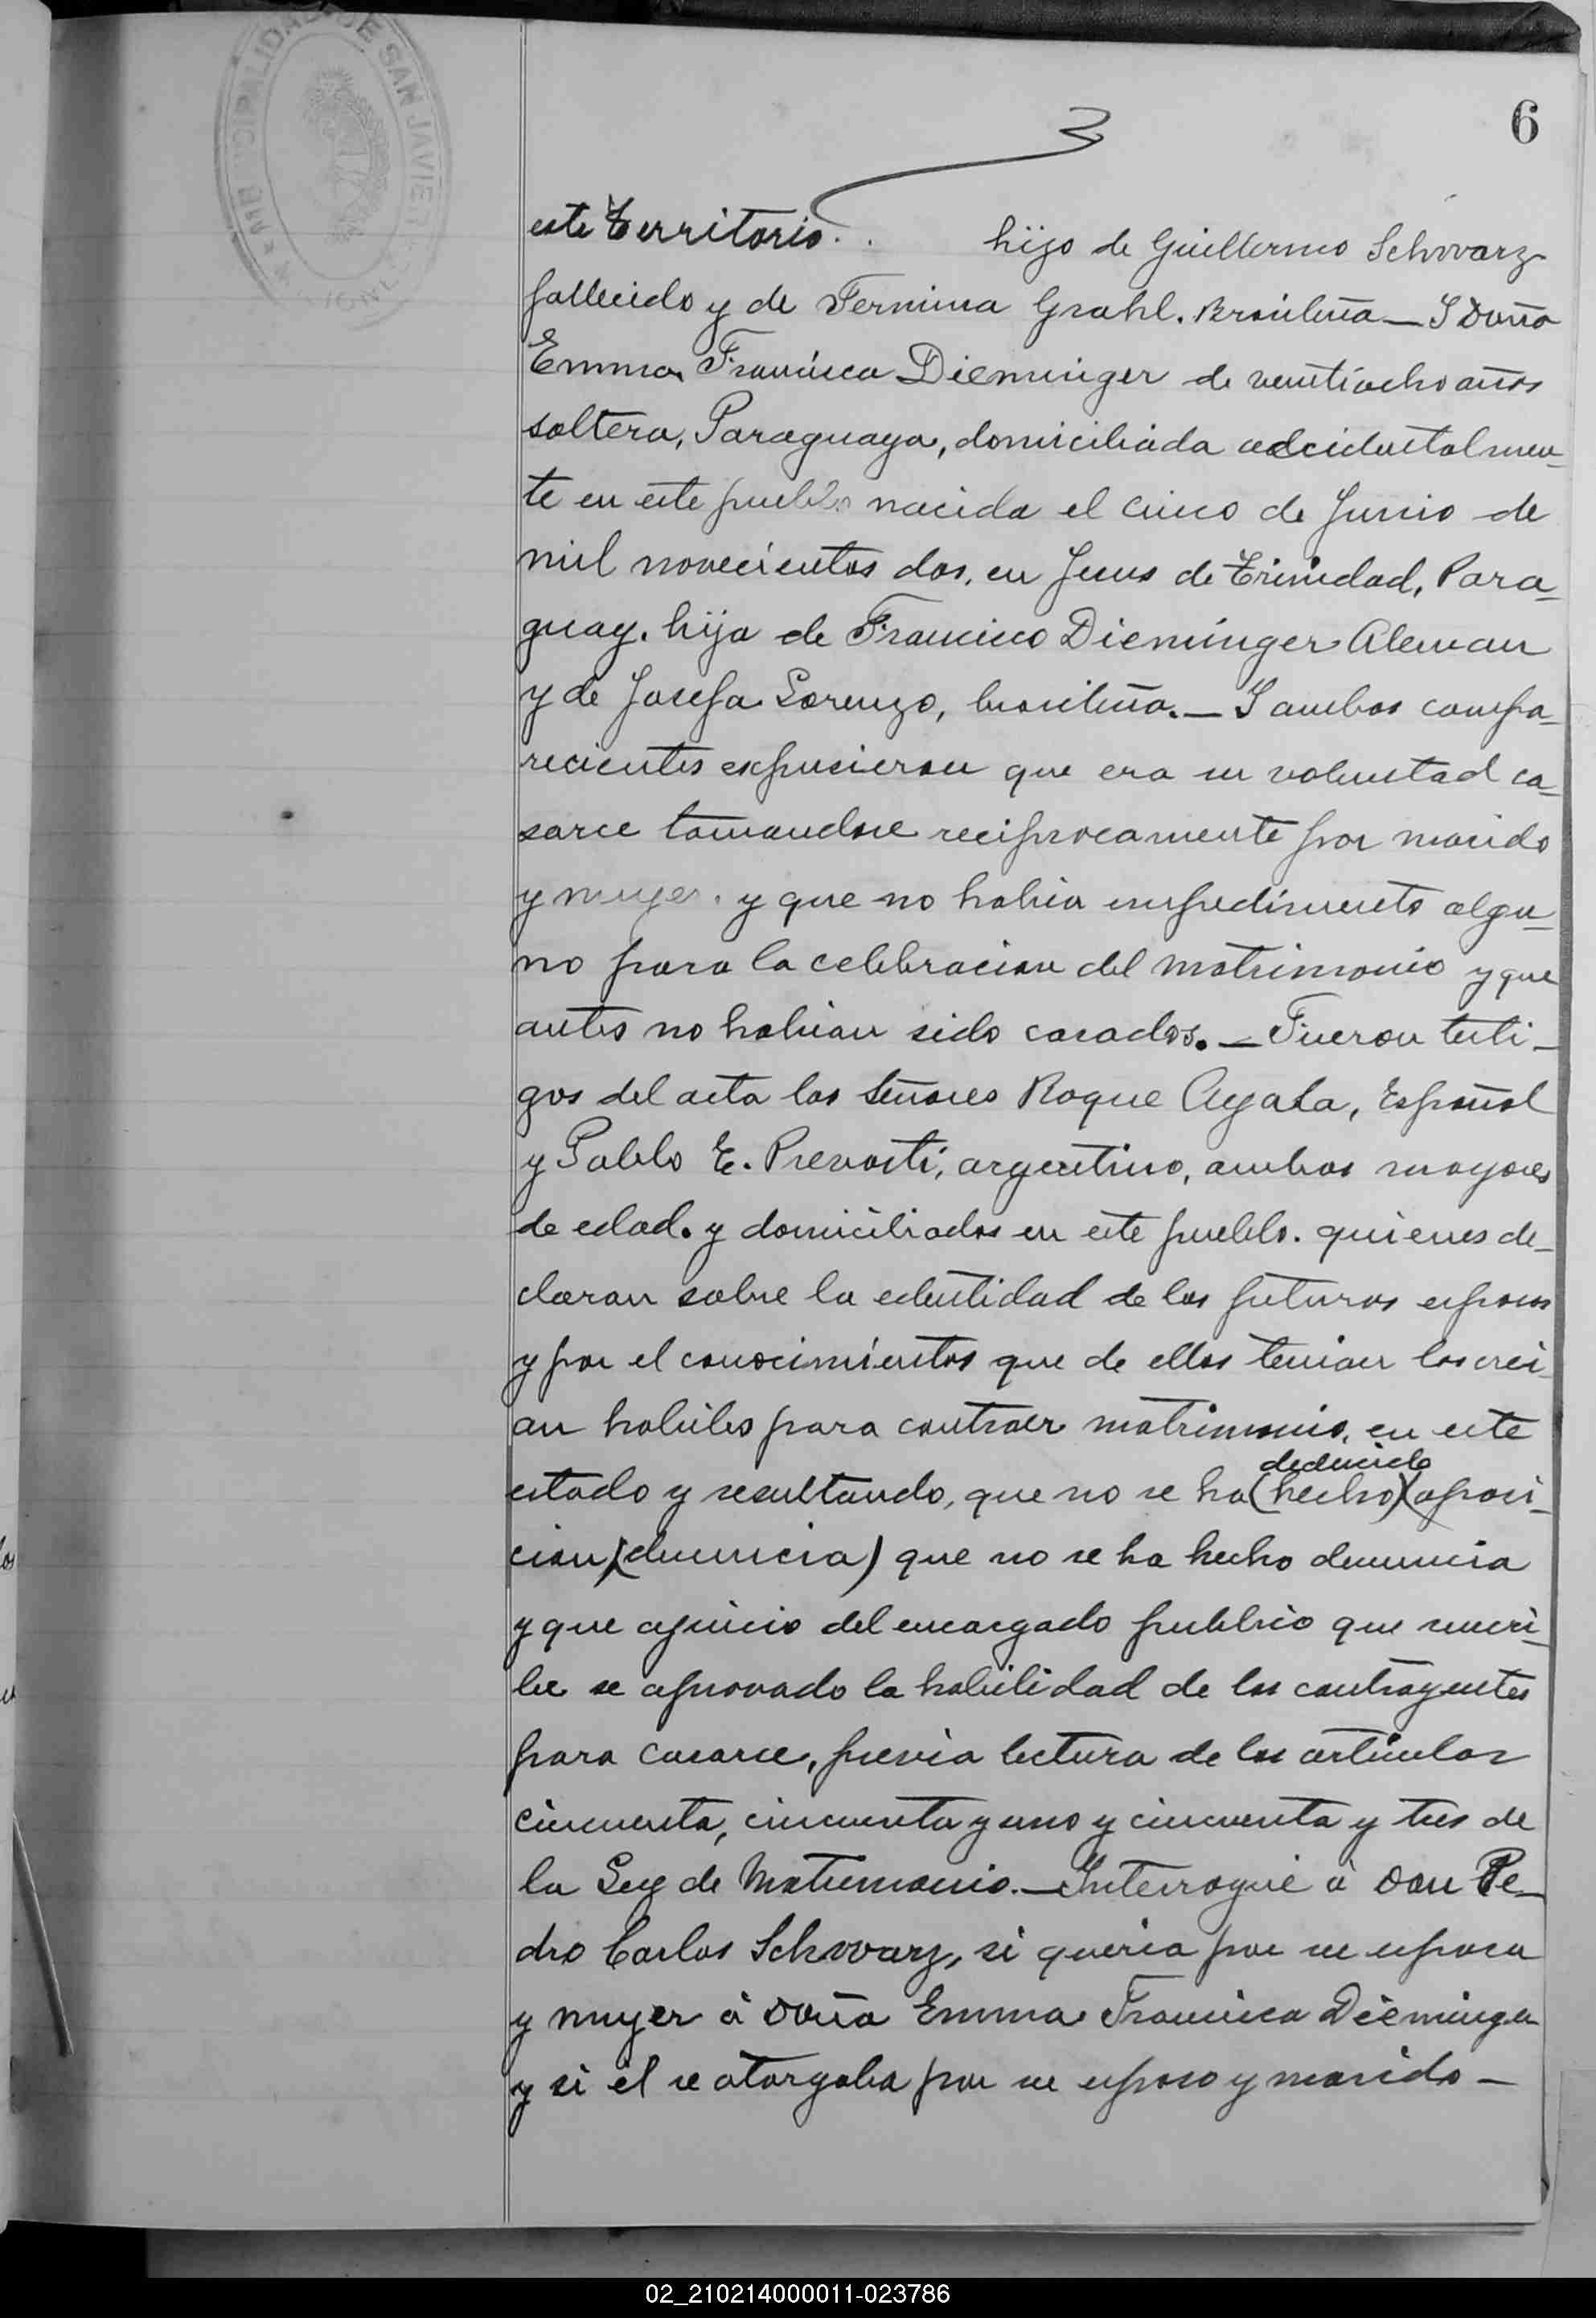 MUNICIPALIDAD DE SAN JAVIER
6
3
este Territorio.. hijo de Guillermo Schwarz
fallecido y de Fermina Grahl. Brasileña — Y Doña
Emma Francisca Dieminger de veintiocho años
soltera, Paraguaya, domiciliada accidentalmen-
te en este pueblo nacida el cinco de Junio de
mil novecientos dos, en Jesus de Trinidad, Para-
guay. hija de Francisco Dieminger Aleman
y de Josefa Lorenzo, brasileña. — Y ambos compa-
recientes expusieron que era su voluntad ca-
sarce tomandose reciprocamente por marido
y muger. y que no habia impedimento algu-
no para la celebracion del matrimonio y que
antes no habian sido casados. — Fueron testi-
gos del acta los Señores Roque Ayala, Español
y Pablo E. Prevosti, argentino, ambos mayores
de edad. y domiciliados en este pueblo. quienes de-
claran sobre la edentidad de los futuros esposos
y por el conocimientos que de ellos tenian los crei-
an habiles para contraer matrimonio, en este
deducido
estado y resultando, que no se ha (hecho) (oposi-
cion) (denuncia) que no se ha hecho denuncia
y que ajuicio del encargado publico que suscri-
be se aprovado la habilidad de los contrayentes
para casarce, previa lectura de los articulos
cincuenta, cincuenta y uno y cincuenta y tres de
la Ley de Matrimonio. — Interrogué à Don Pe-
dro Carlos Schwarz, si queria por su esposa
y muger à Doña Emma Francisca Dieminger
y si él se otorgaba por su esposo y marido —
02_210214000011-023786